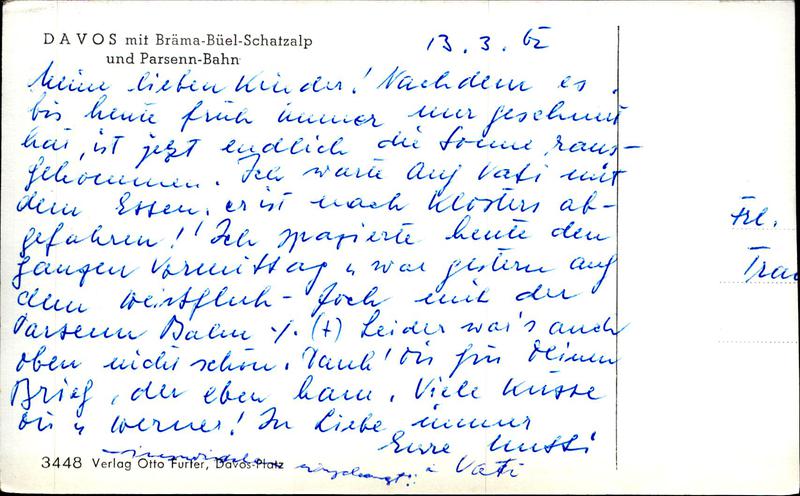 DAVOS mit Bräma-Büel-Schatzalp
und Parsenn-Bahn
13. 3. 62
Meine lieben Kinder! Nachdem es
bis heute früh immer nur geschneit
hat, ist jetzt endlich die Sonne raus-
gekommen. Ich warte auf Vati mit
dem Essen, er ist nach Klosters ab-
gefahren! Ich spazierte heute den
ganzen Vormittag u war gestern auf
dem Weissfluh-Joch mit der
Parsenn Bahn ./. (+) Leider war's auch
oben nicht schön. Dank' Dir für Deinen
Brief, der eben kam. Viele Küsse
Dir u Werner! In Liebe immer
Eure Mutti
u Vati
3448 Verlag Otto Furter, Davos-Platz
Frl.